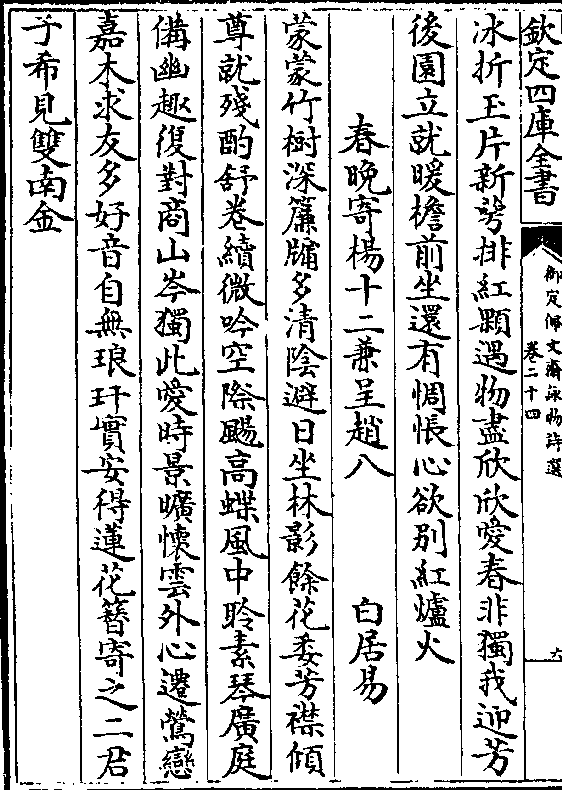 欽定四庫全書
御定佩文齋詠物詩選
卷二十四
六
冰折玉片新萼排紅顆遇物盡欣欣愛春非獨我迎芳
後園立就暖檐前坐還有惆悵心欲别紅爐火
春晚寄楊十二兼呈趙八
白居易
蒙蒙竹樹深簾牖多清陰避日坐林影餘花委芳襟傾
尊就殘酌舒卷續微吟空際颺高蝶風中聆素琴廣庭
備幽趣復對商山岑獨此愛時景曠懷雲外心遷鶯戀
嘉木求友多好音自無琅玕實安得蓮花簪寄之二君
子希見雙南金